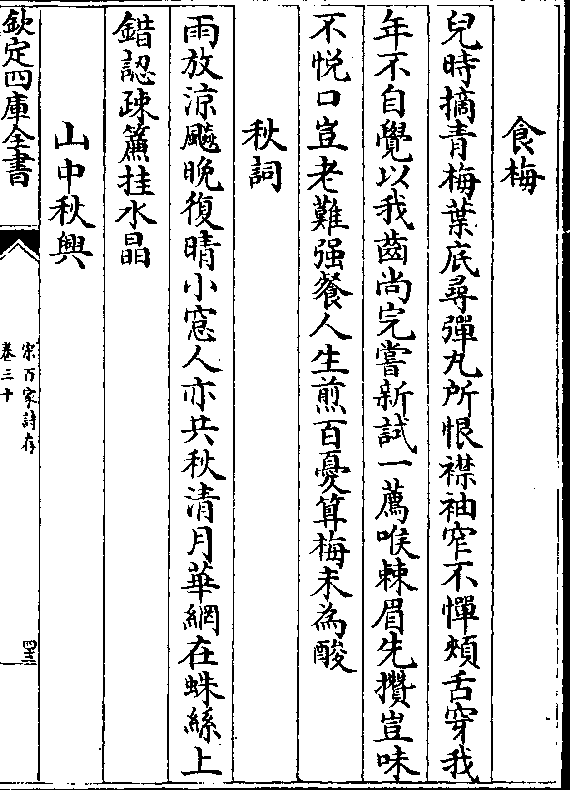 食梅
兒時摘青梅葉底尋彈丸所恨襟袖窄不憚頰舌穿我
年不自覺以我齒尚完嘗新試一薦喉棘眉先攢豈味
不悦口豈老難强餐人生煎百憂算梅未為酸
秋詞
雨放涼颸晚復晴小窓人亦共秋清月華網在蛛絲上
錯認疎簾挂水晶
山中秋興
欽定四庫全書
宋百家詩存
卷三十
四三